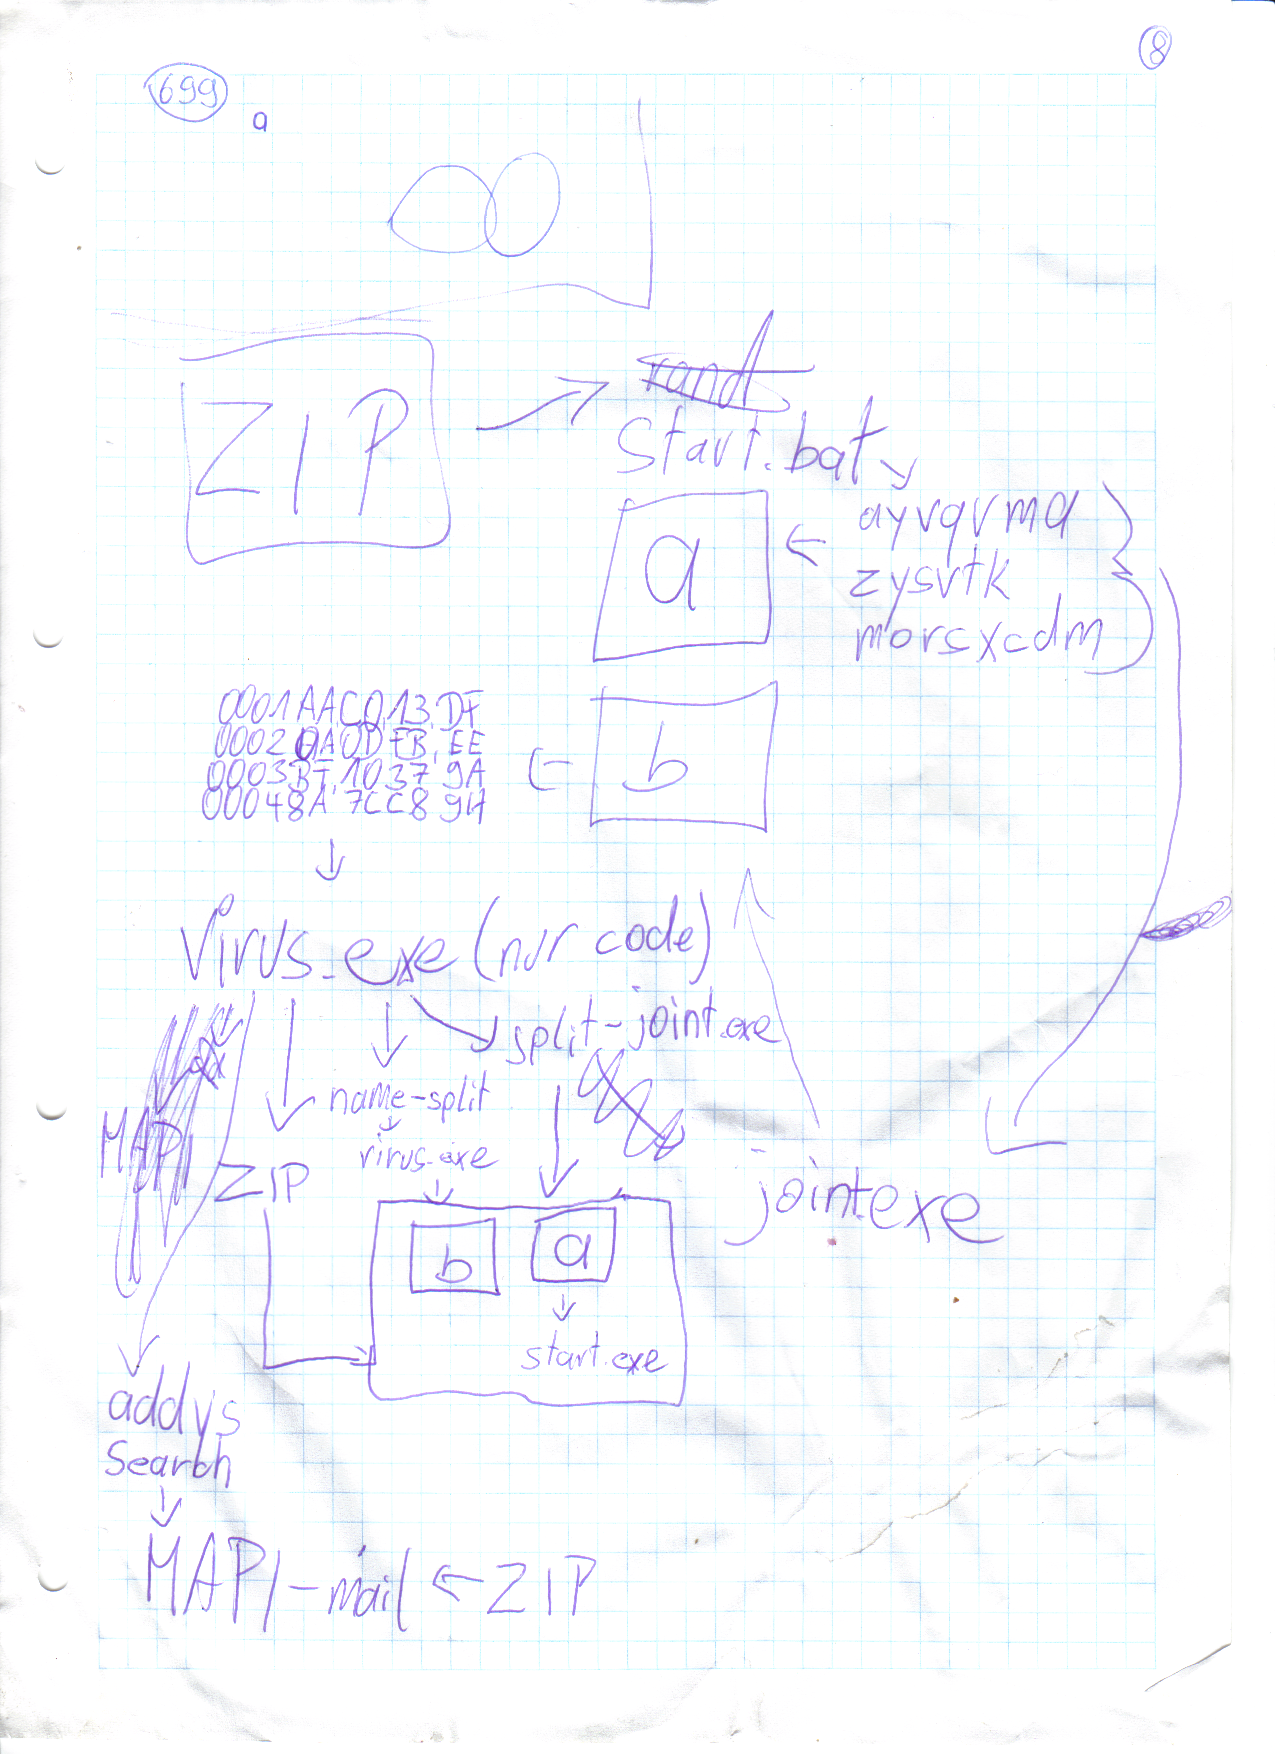 8
699
a
ZIP
Start.bat
a
ayvqvmq
zysvtk
morscxdm
b
0001AAC013DF
0002 0A0DFB EE
0003BF 1037 9A
00048A 7CC8 9A
Virus.exe (nur code)
split-joint.exe
name-split
virus.exe
MAPI
ZIP
joint.exe
b a
start.exe
addys
Search
MAPI-mail ← ZIP